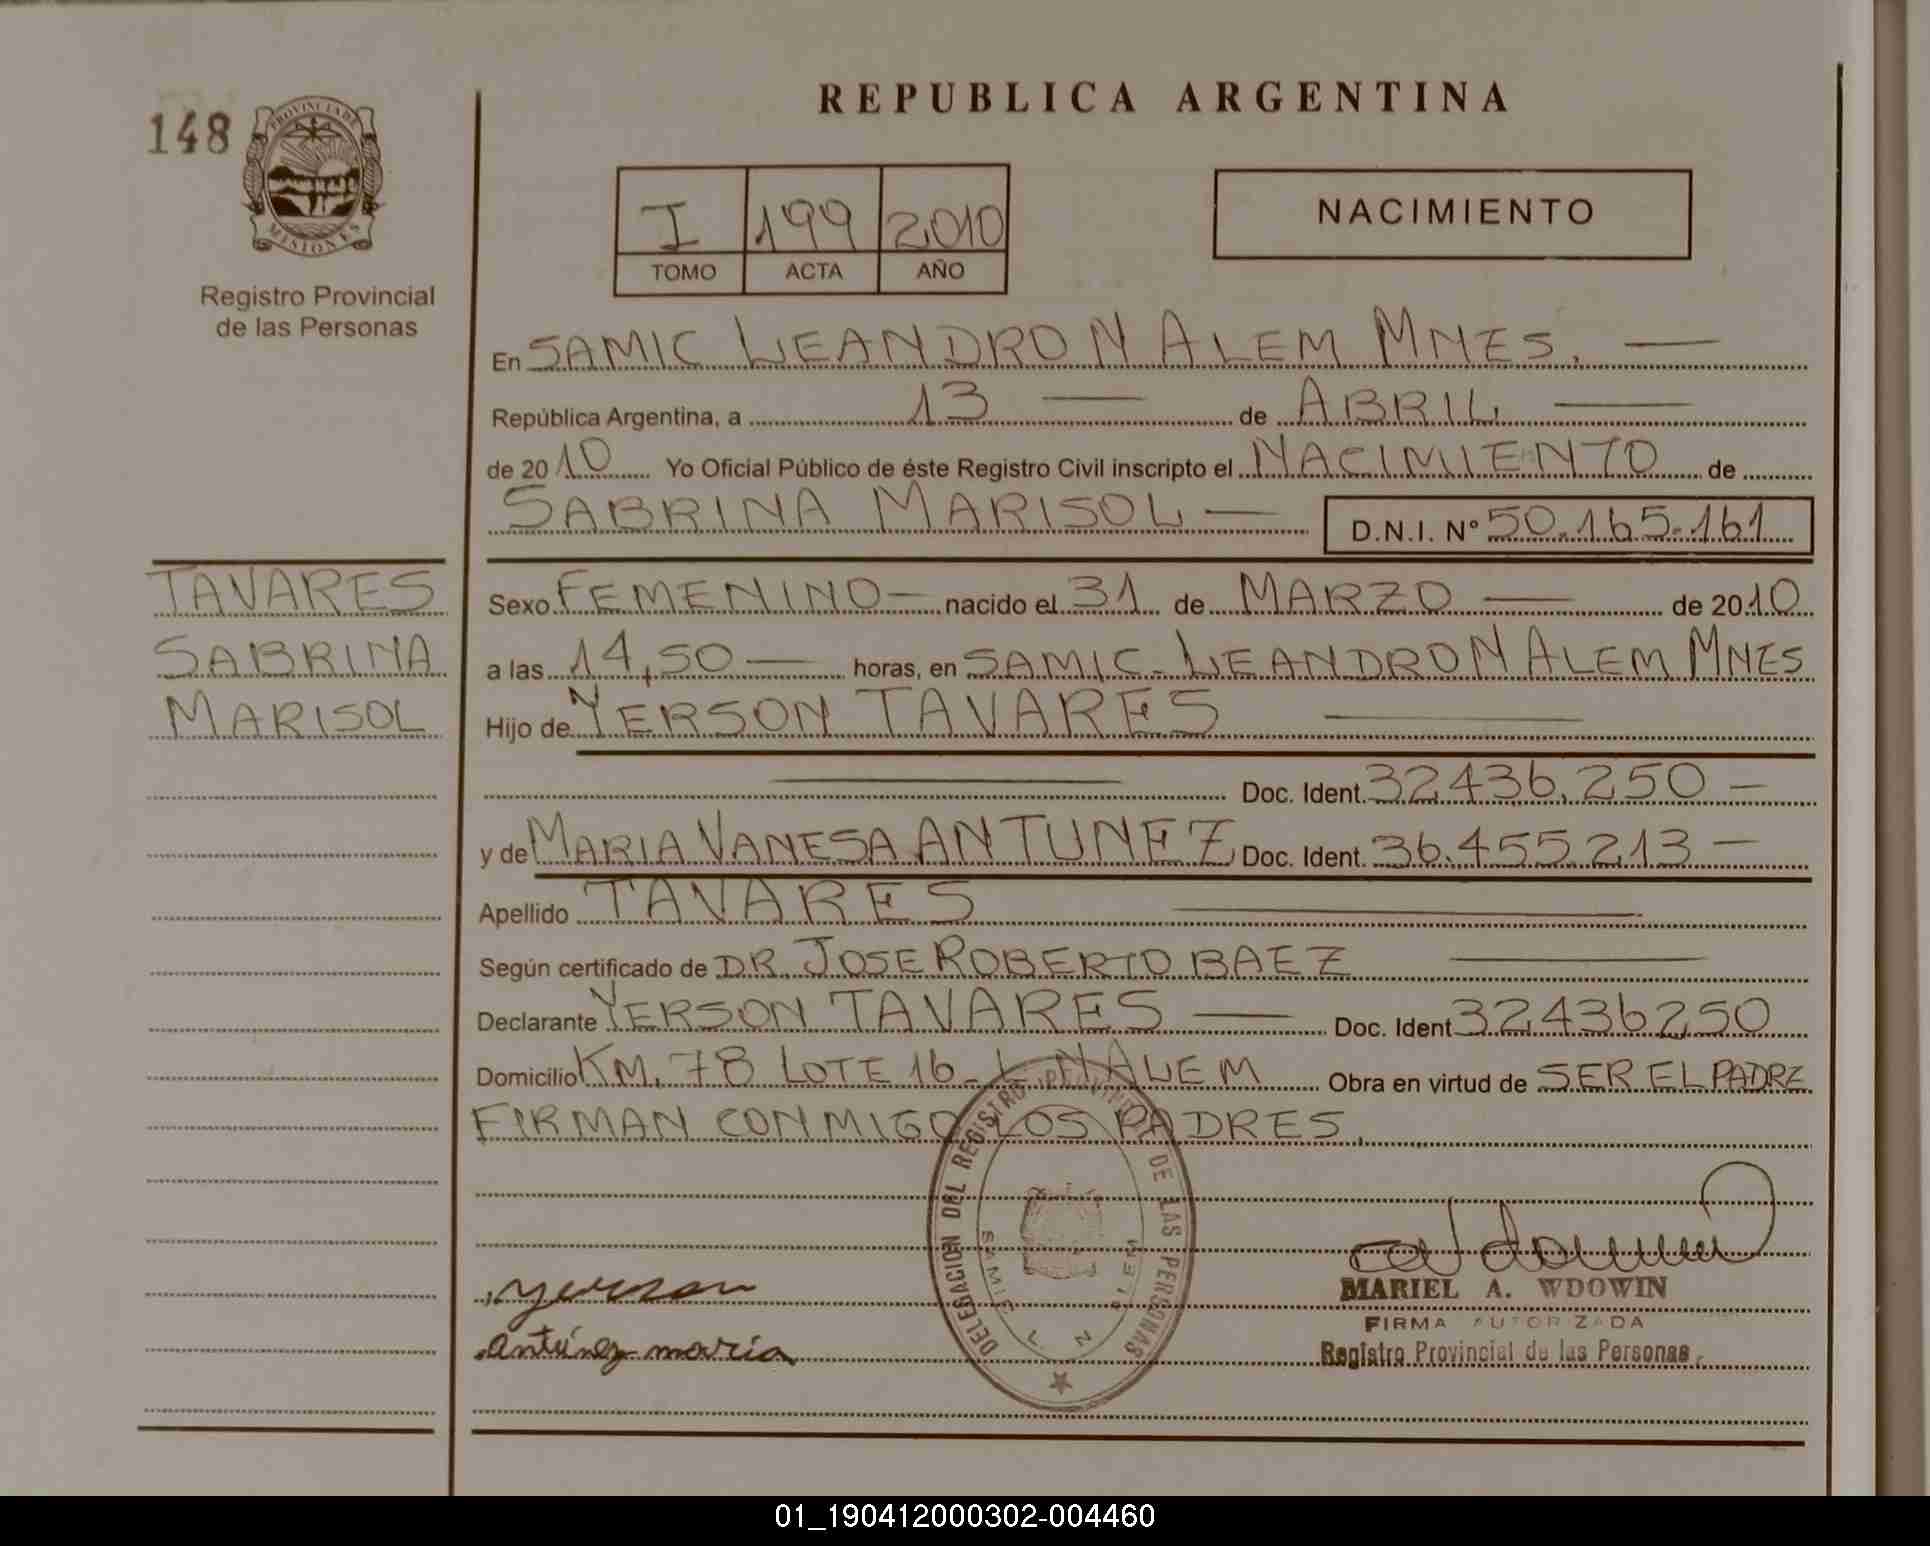 REPUBLICA ARGENTINA
148
PROVINCIA DE
MISIONES
Registro Provincial
de las Personas
I 199 2010
TOMO ACTA AÑO
NACIMIENTO
En SAMIC LEANDRO N ALEM MNES.
República Argentina, a 13 de ABRIL
de 2010 Yo Oficial Público de éste Registro Civil inscripto el NACIMIENTO de
SABRINA MARISOL D.N.I. N° 50.165.161
TAVARES
SABRINA
MARISOL
Sexo FEMENINO nacido el 31 de MARZO de 2010
a las 14,50 horas, en SAMIC. LEANDRO N ALEM MNES
Hijo de YERSON TAVARES
Doc. Ident. 32.436.250
y de MARIA VANESA ANTUNEZ Doc. Ident. 36.455.213
Apellido TAVARES
Según certificado de DR. JOSE ROBERTO BAEZ
Declarante YERSON TAVARES Doc. Ident 32.436250
Domicilio KM. 78 LOTE 16. L. N ALEM Obra en virtud de SER EL PADRE
FIRMAN CONMIGO LOS PADRES.
DELEGACION DEL REGISTRO DE LAS PERSONAS
SAMIC L. N. ALEM
Yerson
Antúnez maría
MARIEL A. WDOWIN
FIRMA AUTORIZADA
Registro Provincial de las Personas
01_190412000302-004460